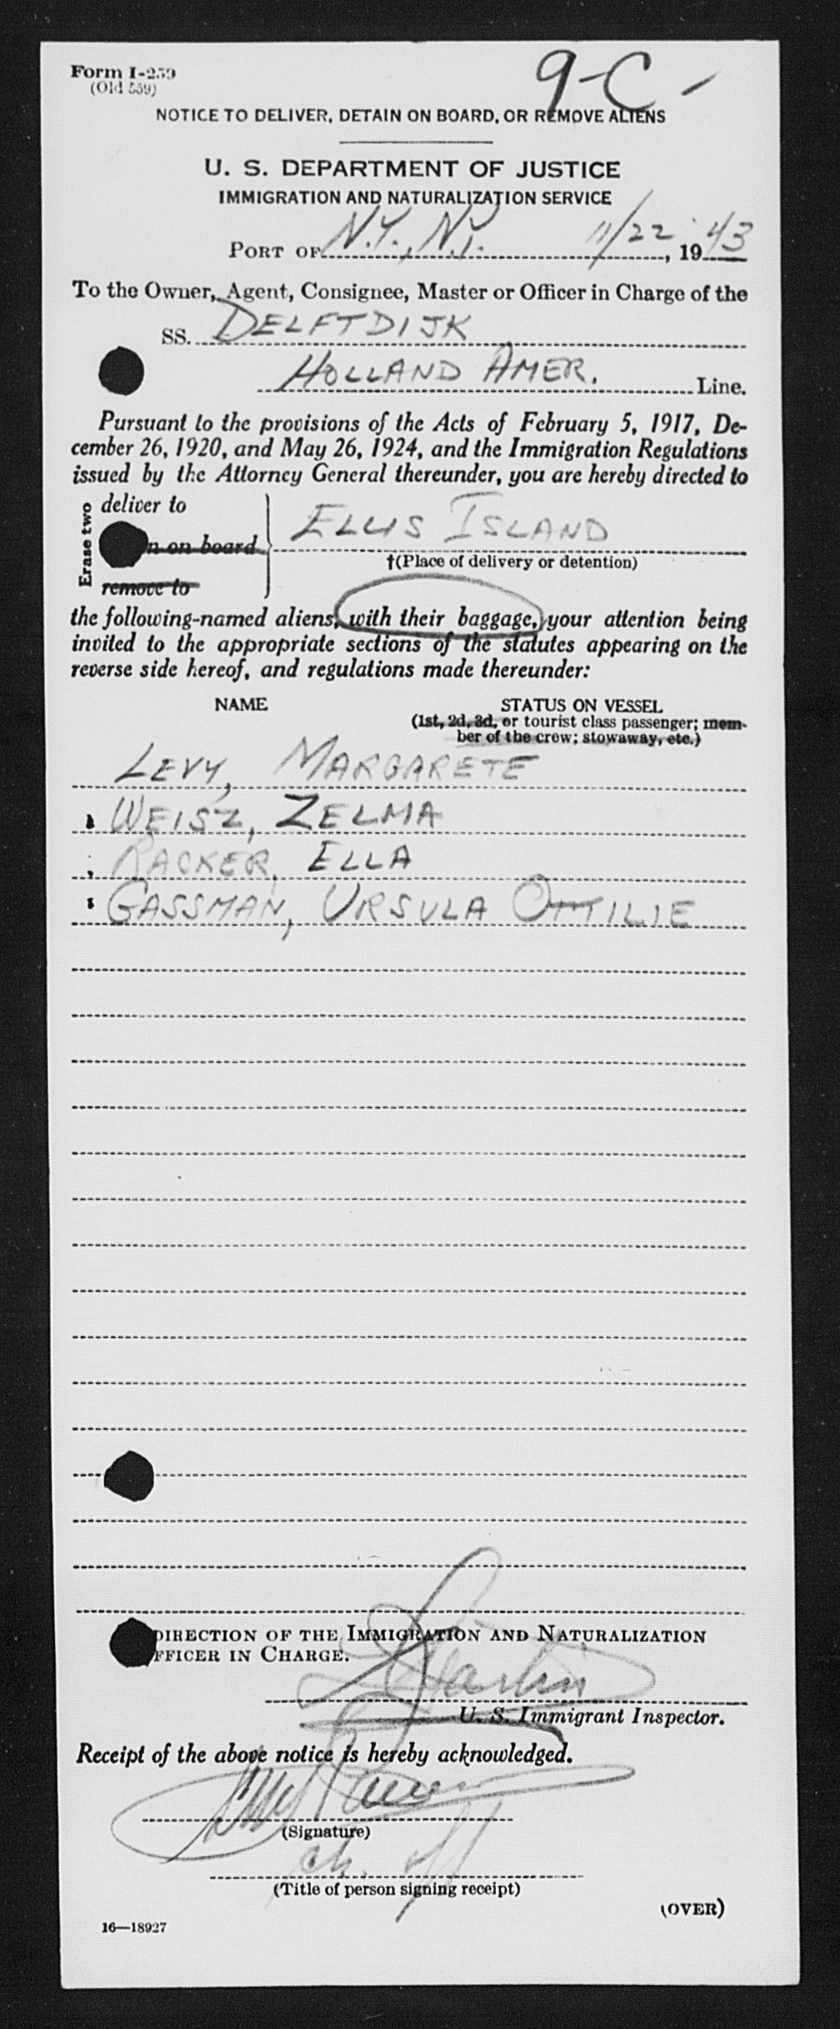 Form I-259
(Old 559)
9-C-
NOTICE TO DELIVER, DETAIN ON BOARD, OR REMOVE ALIENS
U. S. DEPARTMENT OF JUSTICE
IMMIGRATION AND NATURALIZATION SERVICE
PORT OF N.Y., N.Y. 11/22, 1943
To the Owner, Agent, Consignee, Master or Officer in Charge of the
SS. DELFTDIJK
HOLLAND AMER. Line.
Pursuant to the provisions of the Acts of February 5, 1917, De-
cember 26, 1920, and May 26, 1924, and the Immigration Regulations
issued by the Attorney General thereunder, you are hereby directed to
Erase two
deliver to
n on board
remove to
ELLIS ISLAND
†(Place of delivery or detention)
the following-named aliens, with their baggage, your attention being
invited to the appropriate sections of the statutes appearing on the
reverse side hereof, and regulations made thereunder:
NAME STATUS ON VESSEL
(1st, 2d, 3d, or tourist class passenger; mem-
ber of the crew; stowaway, etc.)
LEVY, MARGARETE
WEISZ, ZELMA
RACKER, ELLA
GASSMAN, URSULA OTTILIE
DIRECTION OF THE IMMIGRATION AND NATURALIZATION
FFICER IN CHARGE.
U. S. Immigrant Inspector.
Receipt of the above notice is hereby acknowledged.
(Signature)
ch. off
(Title of person signing receipt)
(OVER)
16—18927